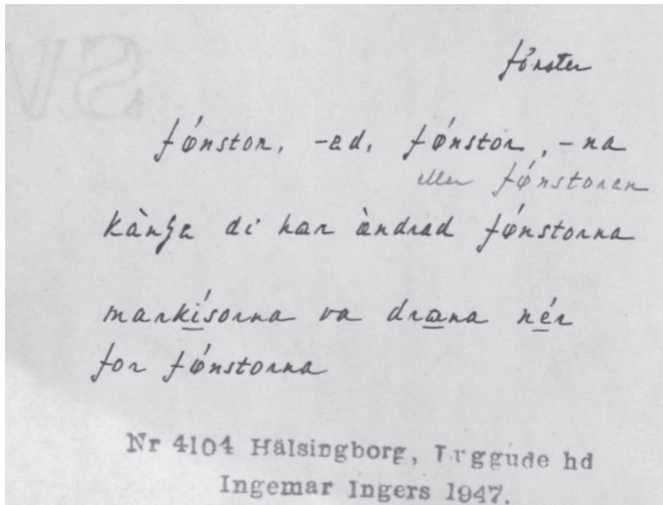 fönster
fǿnstor, -ed, fǿnstor, -na
eller fǿnstoren
kànʃe di har ändrad fǿnstorna
markísorna va drana nér
for fǿnstorna
Nr 4104 Hälsingborg, Luggude hd
Ingemar Ingers 1947.